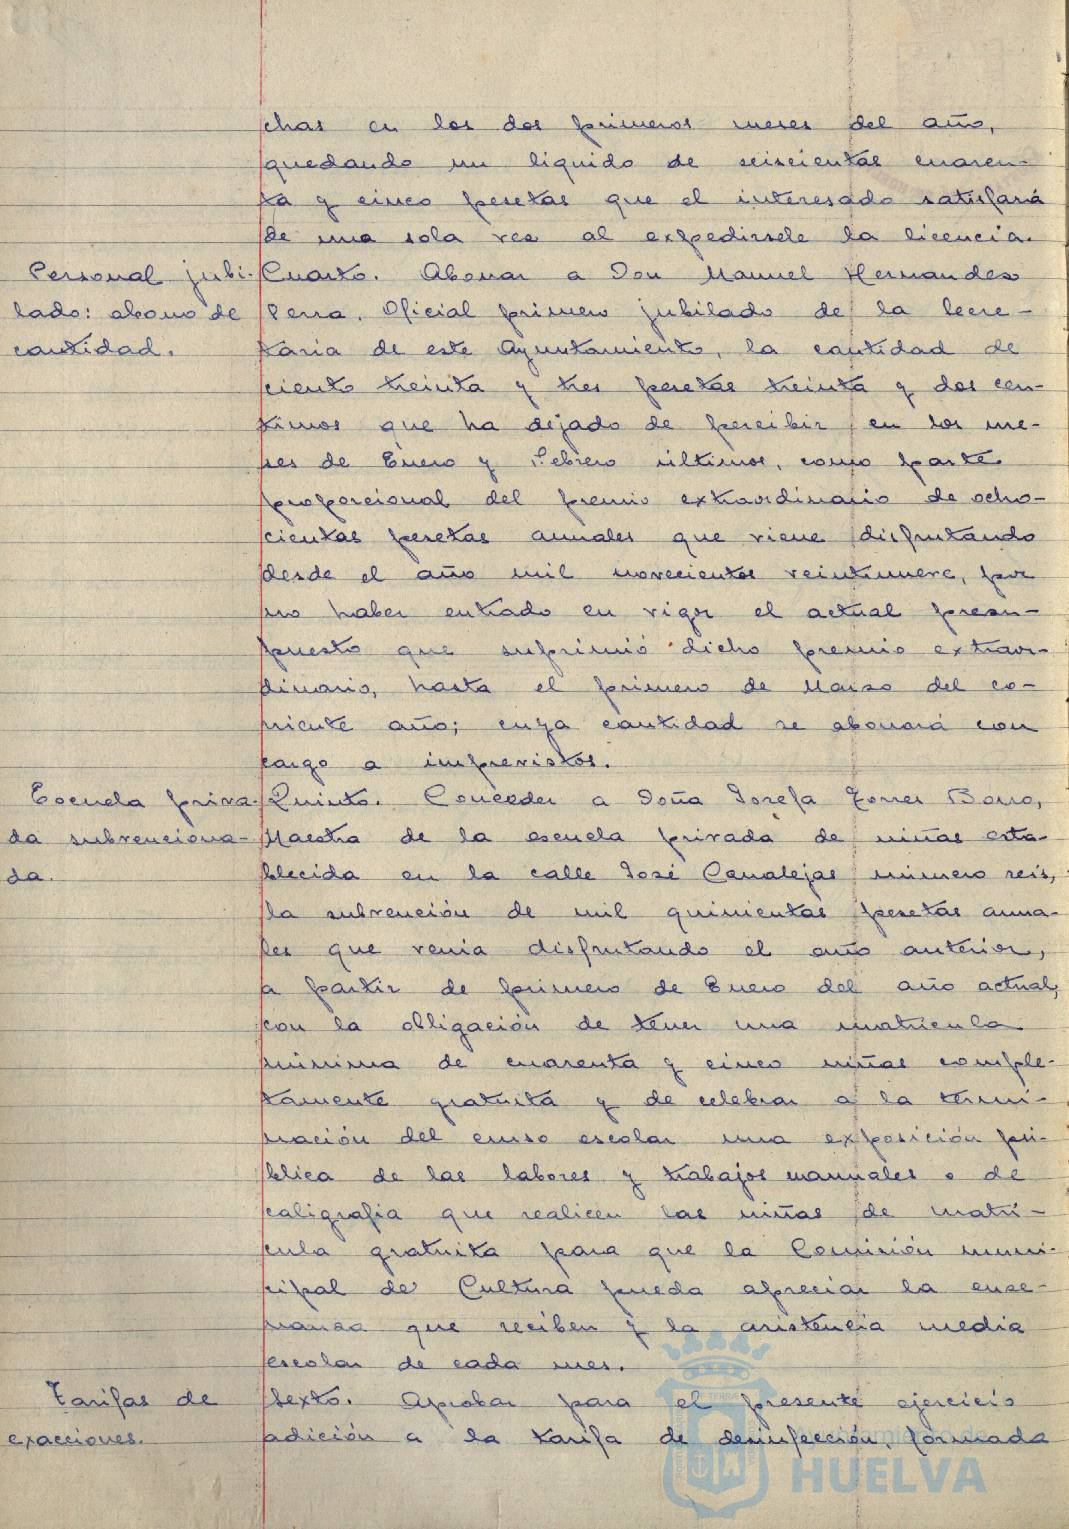 chas en los dos primeros meses del año,
quedando un líquido de seiscientas cuaren-
ta y cinco pesetas que el interesado satisfará
de una sola vez al expedirsele la licencia.
Personal jubi-
lado: abono de
cantidad.
Cuarto. Abonar a Don Manuel Hernandez
Perra, Oficial primero jubilado de la Secre-
taria de este Ayuntamiento, la cantidad de
ciento treinta y tres pesetas treinta y dos cen-
timos que ha dejado de percibir en los me-
ses de Enero y Febrero últimos, como parte
proporcional del premio extraordinario de ocho-
cientas pesetas anuales que viene disfrutando
desde el año mil novecientos veintinueve, por
no haber entrado en vigor el actual presu-
puesto que suprimió dicho premio extraor-
dinario, hasta el primero de Marzo del co-
rriente año; cuya cantidad se abonará con
cargo a imprevistos.
Escuela priva-
da subvenciona-
da.
Quinto. Conceder a Doña Josefa Torres Borro,
Maestra de la escuela privada de niñas esta-
blecida en la calle José Canalejas número seis,
la subvención de mil quinientas pesetas anua-
les que venia disfrutando el año anterior,
a partir de primero de Enero del año actual,
con la obligación de tener una matricula
minima de cuarenta y cinco niñas comple-
tamente gratuita y de celebrar a la termi-
nación del curso escolar una exposición pú-
blica de las labores y trabajos manuales o de
caligrafia que realicen las niñas de matrí-
cula gratuita para que la Comisión muni-
cipal de Cultura pueda apreciar la ense-
ñanza que reciben y la asistencia media
escolar de cada mes.
Tarifas de
exacciones.
Sexto. Aprobar para el presente ejercicio
adición a la tarifa de desinfección, formada
Ayuntamiento de
HUELVA